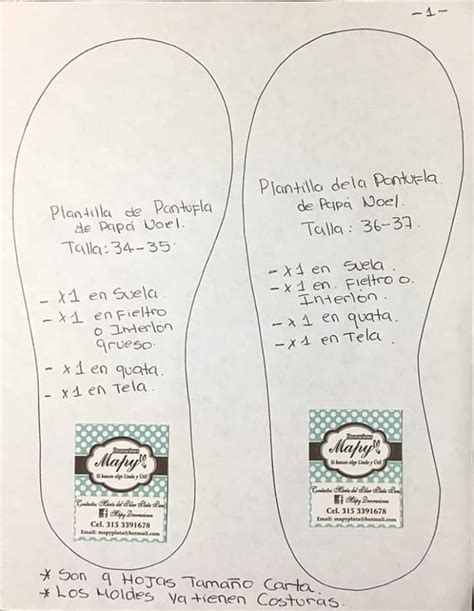 -1-
Plantilla de Pantufla
de Papá Noel.
Talla: 34-35.
- x1 en Suela.
- x1 en Fieltro
o Interlón
grueso.
- x1 en guata.
- x1 en Tela.
Decoraciones
Mapy
Si buscas algo Lindo y Útil
Contacto: María del Pilar Plata
Mapy Decoraciones
Cel. 315 3391678
Email: mapyplata@hotmail.com
Plantilla de la Pantufla
de Papá Noel.
Talla: 36-37.
- x1 en Suela.
- x1 en Fieltro o
Interlón.
- x1 en guata.
- x1 en Tela.
Decoraciones
Mapy
Si buscas algo Lindo y Útil
Contacto: María del Pilar Plata
Mapy Decoraciones
Cel. 315 3391678
Email: mapyplata@hotmail.com
* Son 9 Hojas Tamaño Carta.
* Los Moldes ya tienen Costuras.